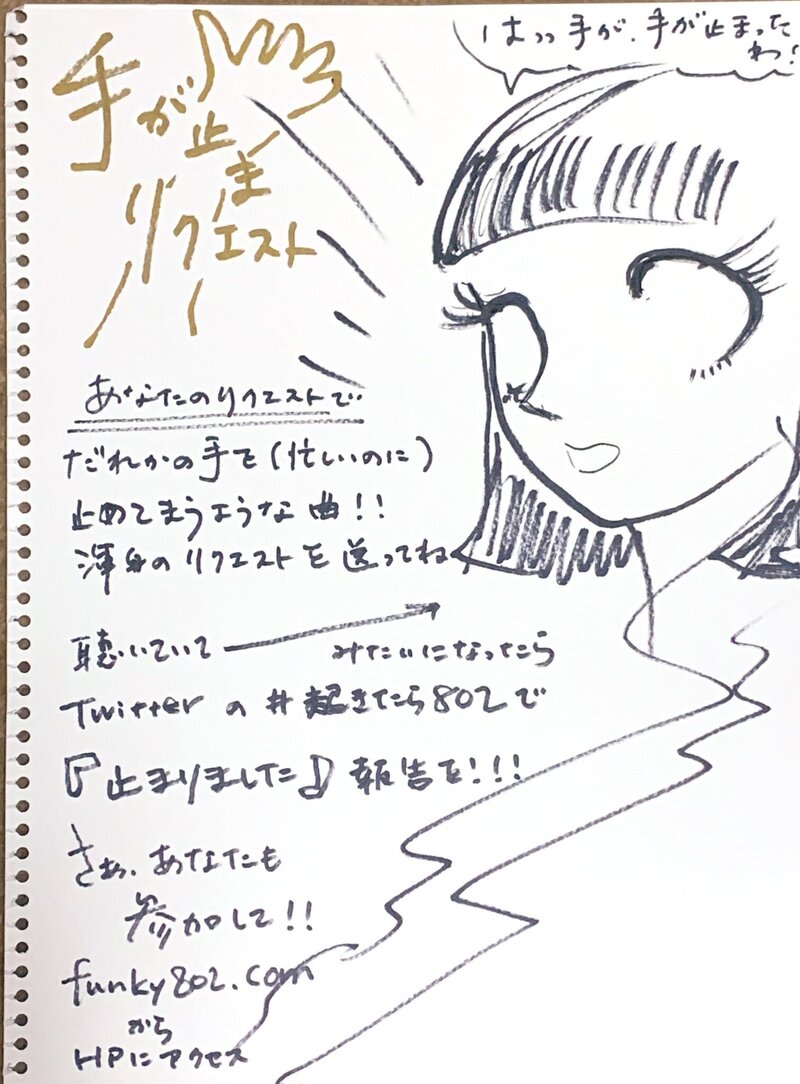 手が止ま
リクエスト
はっっ手が、手が止まった
わ!
あなたのリクエストで…
だれかの手を(忙しいのに)
止めてまうような曲!!
渾身のリクエストを送ってね
聴いていて → みたいになったら
Twitterの#起きたら802で
『止まりました』報告を!!!
さぁ、あなたも
参加して!!
funky802.com
から
HPにアクセス